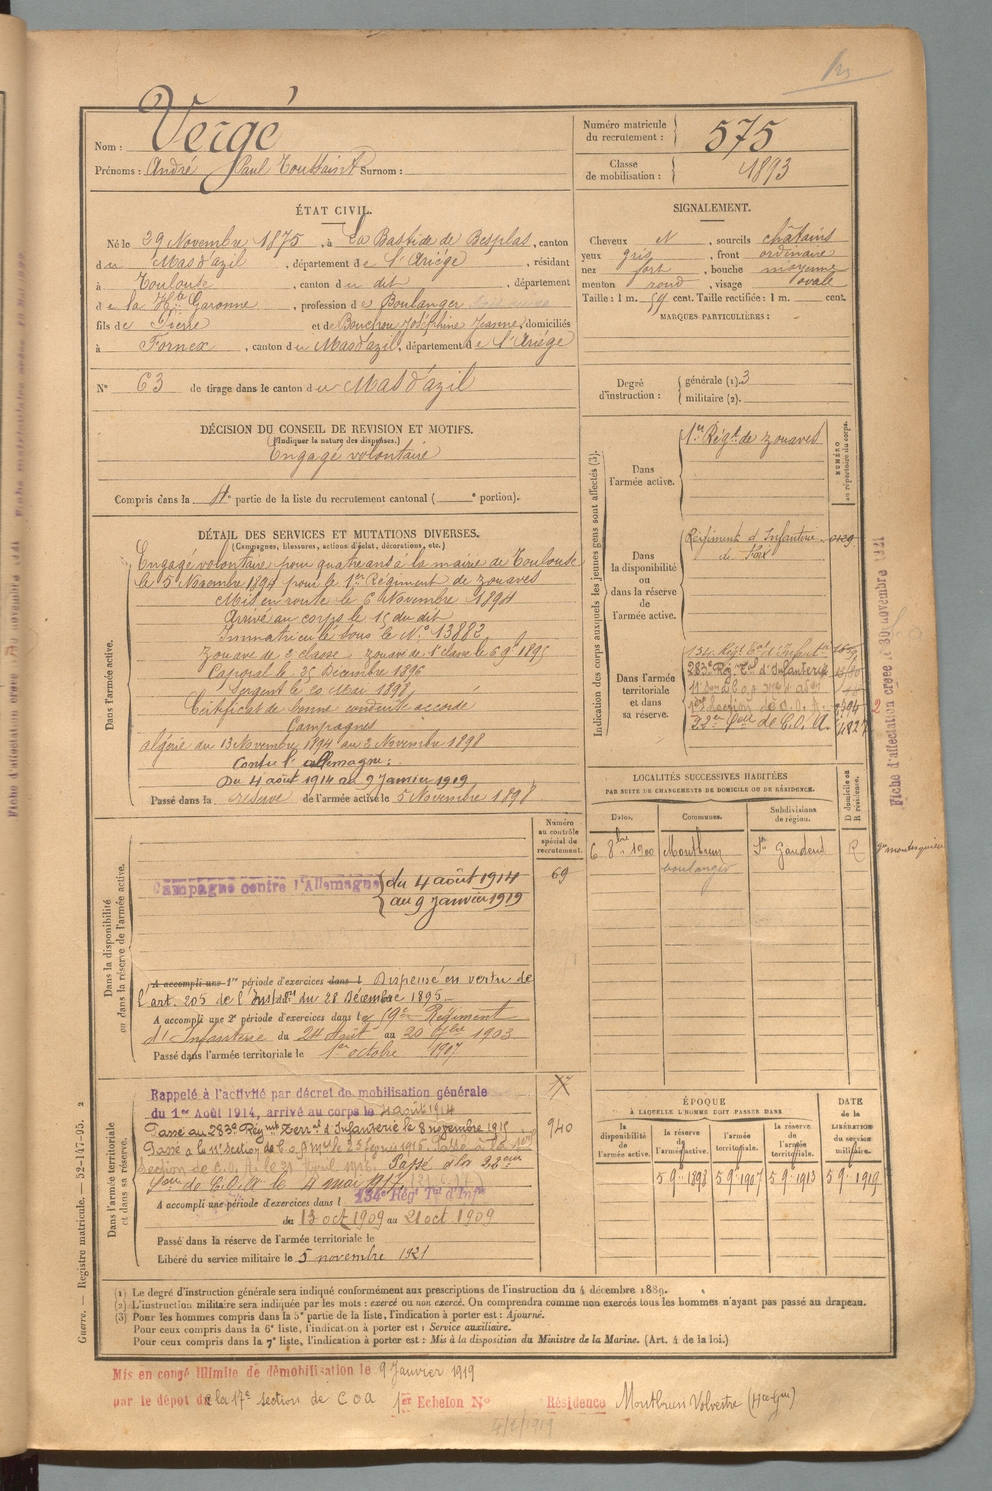 Nom : Vergé
Prénoms : André Paul Toussaint Surnom :
Numéro matricule du recrutement : 575
Classe de mobilisation : 1893
ÉTAT CIVIL.
Né le 29 Novembre 1875, à La Bastide de Besplas, canton
du Mas d'azil, département de l'Ariége, résidant
à Toulouse, canton du dit, département
de la Hte Garonne, profession de Boulanger
fils de Pierre et de Bouchou Joséphine Jeanne, domiciliés
à Fornex, canton du Mas d'azil, département de l'Ariége
N° 63 de tirage dans le canton du Mas d'azil
SIGNALEMENT.
Cheveux N, sourcils châtains
yeux gris, front ordinaire
nez fort, bouche moyenne
menton rond, visage ovale
Taille : 1 m. 59 cent. Taille rectifiée : 1 m. cent.
MARQUES PARTICULIÈRES :
Degré d'instruction : générale (1). 3
militaire (2).
DÉCISION DU CONSEIL DE REVISION ET MOTIFS.
(Indiquer la nature des dispenses.)
Engagé volontaire
Compris dans la 4e partie de la liste du recrutement cantonal ( e portion).
DÉTAIL DES SERVICES ET MUTATIONS DIVERSES.
(Campagnes, blessures, actions d'éclat, décorations, etc.)
Dans l'armée active.
Engagé volontaire pour quatre ans à la mairie de Toulouse
le 5 Novembre 1894 pour le 1er Régiment de zouaves
Mis en route le 6 Novembre 1894
Arrivé au corps le 15 du dit
Immatriculé sous le N° 13882
Zouave de 2 classe zouave de 1e classe le 6 9e 1895
Caporal le Décembre 1896
Sergent le 20 Mai 1898
Certificat de bonne conduite accordé
Campagnes
algérie du 13 Novembre 1894 au 2 Novembre 1898
Contre l'allemagne :
Du 4 août 1914 au 9 janvier 1919
Passé dans la réserve de l'armée active le 5 Novembre 1898
Indication des corps auxquels les jeunes gens sont affectés (3).
NUMÉRO au répertoire du corps.
Dans l'armée active.
1er Régt de zouaves
Dans la disponibilité ou dans la réserve de l'armée active.
Régiment d'Infanterie
de Foix
Dans l'armée territoriale et dans sa réserve.
134e Régt Tal d'Infanterie
283e Rég Tal d'Infanterie
1ère Section de C.O.A.
22e Son de C.O.A.
LOCALITÉS SUCCESSIVES HABITÉES
PAR SUITE DE CHANGEMENTS DE DOMICILE OU DE RÉSIDENCE.
Dates. Communes. Subdivisions de région. D domicile ou R résidence.
6 8bre 1900 Montbrun St Gaudens R
boulanger
Numéro au contrôle spécial du recrutement.
69
Dans la disponibilité ou dans la réserve de l'armée active.
Campagne contre l'Allemagne du 4 août 1914
au 9 janvier 1919
A accompli une 1re période d'exercices dans l Dispensé en vertu de
l'art. 205 de l'Instion du 28 Décembre 1895
A accompli une 2e période d'exercices dans le 59e Régiment
d'Infanterie du 24 Août au 20 7bre 1903
Passé dans l'armée territoriale le 1er octobre 1907
Dans l'armée territoriale et dans sa réserve.
940
Rappelé à l'activité par décret de mobilisation générale
du 1er Août 1914, arrivé au corps le 4 août 1914
Passé au 283e Régimt Terral d'Infanterie le 8 novembre 1915
Section de C.O.A. le 21 Avril 1916 Passé à la 22ème
Son de C.O.A. le 4 mai 1917
A accompli une période d'exercices dans l 134e Régt Tal d'Infie
du 13 oct 1909 au 21 oct 1909
Passé dans la réserve de l'armée territoriale le
Libéré du service militaire le 5 novembre 1921
ÉPOQUE
À LAQUELLE L'HOMME DOIT PASSER DANS
la disponibilité de l'armée active. la réserve de l'armée active. l'armée territoriale. la réserve de l'armée territoriale.
DATE de la LIBÉRATION du service militaire.
5 9e 1898 5 9e 1907 5 9e 1913 5 9e 1919
(1) Le degré d'instruction générale sera indiqué conformément aux prescriptions de l'instruction du 4 décembre 1889.
(2) L'instruction militaire sera indiquée par les mots : exercé ou non exercé. On comprendra comme non exercés tous les hommes n'ayant pas passé au drapeau.
(3) Pour les hommes compris dans la 5e partie de la liste, l'indication à porter est : Ajourné.
Pour ceux compris dans la 6e liste, l'indication à porter est : Service auxiliaire.
Pour ceux compris dans la 7e liste, l'indication à porter est : Mis à la disposition du Ministre de la Marine. (Art. 4 de la loi.)
Guerre. — Registre matricule. — 52-147-95. 2
Mis en congé illimité de démobilisation le 9 Janvier 1919
par le dépôt de la 17e section de COA 1er Echelon N° Résidence Montbrun Volvestre (Hte Gne)
Fiche d'affectation créée le 30 novembre 1921